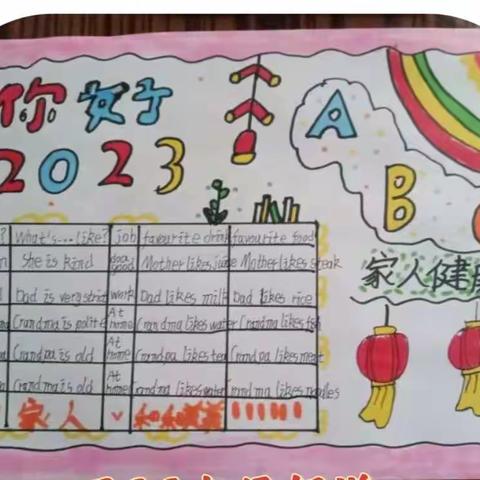 你好
2023
A
B
家人健康
what's...like? job favourite drink favourite food
She is kind Mother likes juice Mother likes steak
Dad is very strict work Dad likes milk Dad likes rice
Grandma is polite At home Grandma likes water Grandma likes fish
Grandpa is old At home Grandpa likes tea Grandpa likes meat
Grandma is old At home Grandma likes water Grandma likes noodles
家人